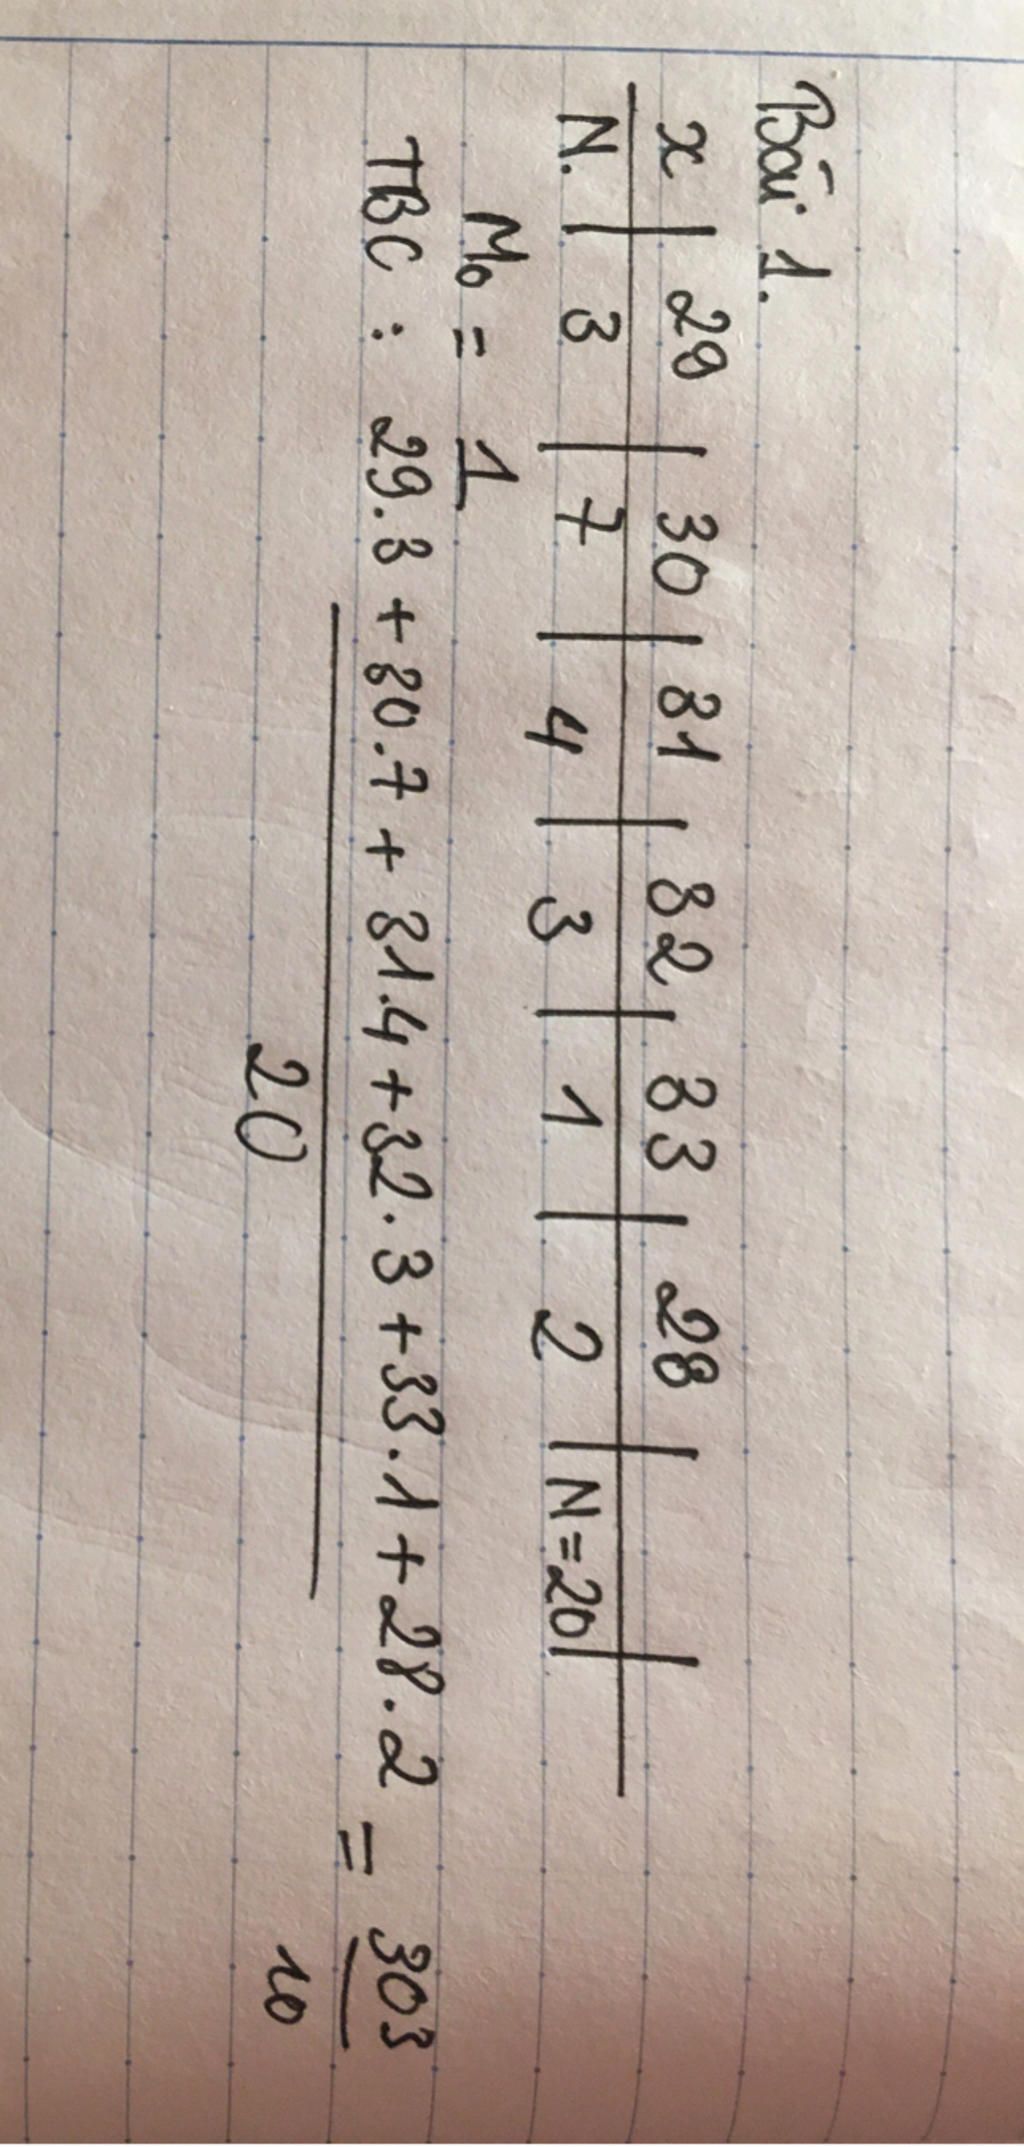 Bài 1.
x | 29 | 30 | 31 | 32 | 33 | 28 |
N. | 3 | 7 | 4 | 3 | 1 | 2 | N=20 |
M₀ = 1
TBC : 29.3 + 30.7 + 31.4 + 32.3 + 33.1 + 28.2 = 303
20 10